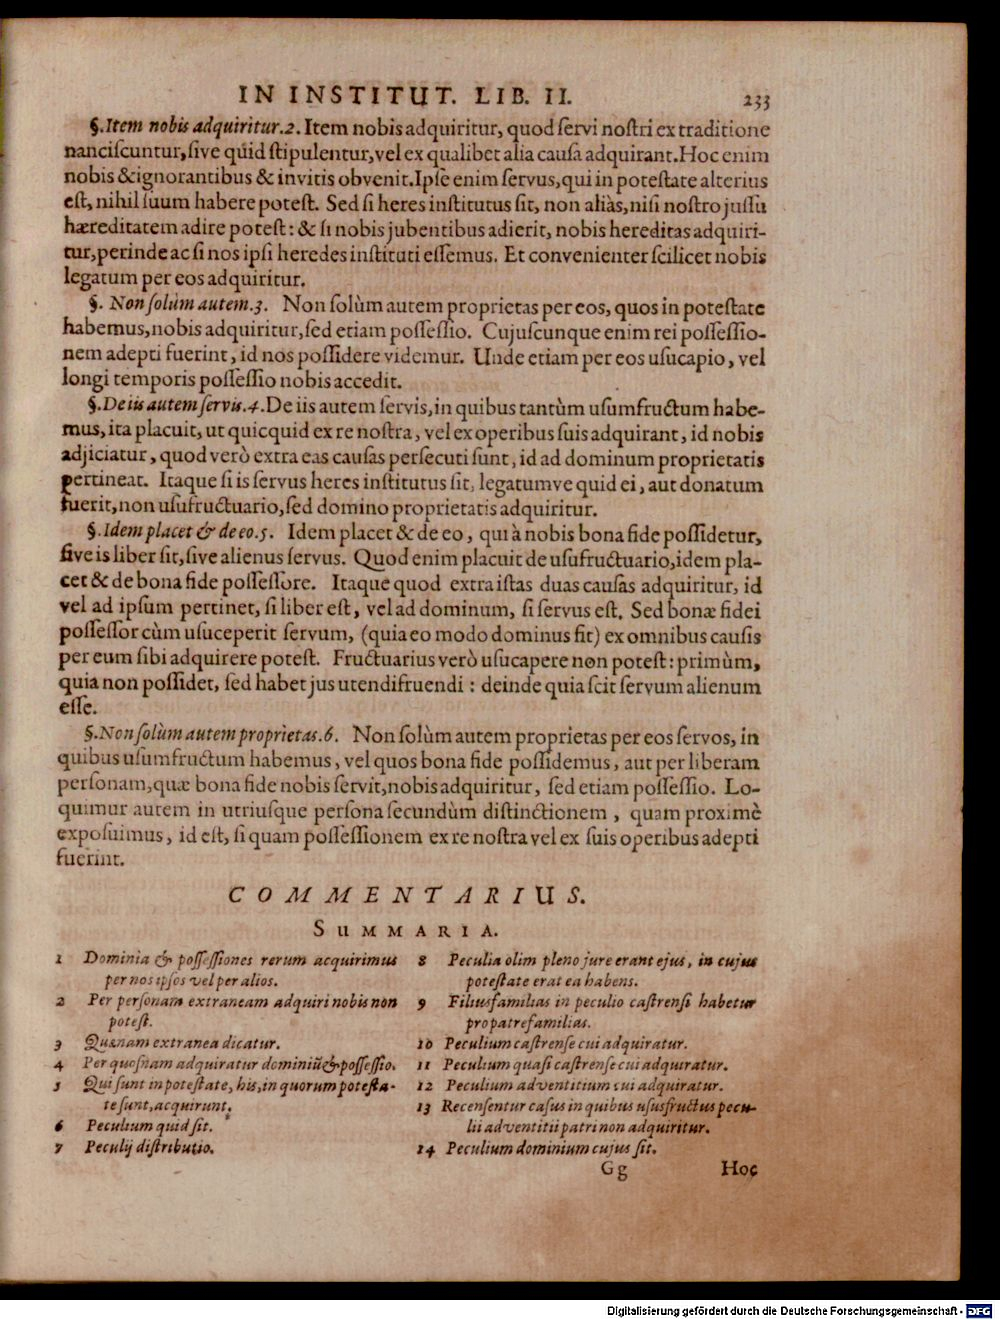 IN INSTITUT. LIB. II. 233
§. Item nobis adquiritur. 2. Item nobis adquiritur, quod ſervi noſtri ex traditione
nanciſcuntur, ſive quid ſtipulentur, vel ex qualibet alia cauſa adquirant. Hoc enim
nobis & ignorantibus & invitis obvenit. Ipſe enim ſervus, qui in poteſtate alterius
eſt, nihil ſuum habere poteſt. Sed ſi heres inſtitutus ſit, non aliàs, niſi noſtro juſſu
hæreditatem adire poteſt: & ſi nobis jubentibus adierit, nobis hereditas adquiri-
tur, perinde ac ſi nos ipſi heredes inſtituti eſſemus. Et convenienter ſcilicet nobis
legatum per eos adquiritur.
§. Non ſolùm autem. 3. Non ſolùm autem proprietas per eos, quos in poteſtate
habemus, nobis adquiritur, ſed etiam poſſeſſio. Cujuſcunque enim rei poſſeſſio-
nem adepti fuerint, id nos poſſidere videmur. Unde etiam per eos uſucapio, vel
longi temporis poſſeſſio nobis accedit.
§. De iis autem ſervis. 4. De iis autem ſervis, in quibus tantùm uſumfructum habe-
mus, ita placuit, ut quicquid ex re noſtra, vel ex operibus ſuis adquirant, id nobis
adjiciatur, quod verò extra eas cauſas perſecuti ſunt, id ad dominum proprietatis
pertineat. Itaque ſi is ſervus heres inſtitutus ſit, legatumve quid ei, aut donatum
fuerit, non uſufructuario, ſed domino proprietatis adquiritur.
§. Idem placet & de eo. 5. Idem placet & de eo, qui à nobis bona fide poſſidetur,
ſive is liber ſit, ſive alienus ſervus. Quod enim placuit de uſufructuario, idem pla-
cet & de bona fide poſſeſſore. Itaque quod extra iſtas duas cauſas adquiritur, id
vel ad ipſum pertinet, ſi liber eſt, vel ad dominum, ſi ſervus eſt. Sed bonæ fidei
poſſeſſor cùm uſuceperit ſervum, (quia eo modo dominus fit) ex omnibus cauſis
per eum ſibi adquirere poteſt. Fructuarius verò uſucapere non poteſt: primùm,
quia non poſſidet, ſed habet jus utendifruendi: deinde quia ſcit ſervum alienum
eſſe.
§. Non ſolùm autem proprietas. 6. Non ſolùm autem proprietas per eos ſervos, in
quibus uſumfructum habemus, vel quos bona fide poſſidemus, aut per liberam
perſonam, quæ bona fide nobis ſervit, nobis adquiritur, ſed etiam poſſeſſio. Lo-
quimur autem in utriuſque perſona ſecundùm diſtinctionem, quam proximè
expoſuimus, id eſt, ſi quam poſſeſſionem ex re noſtra vel ex ſuis operibus adepti
fuerint.
COMMENTARIUS.
SUMMARIA.
1 Dominia & poſſeſſiones rerum acquirimus
per nos ipſos vel per alios.
2 Per perſonam extraneam adquiri nobis non
poteſt.
3 Quænam extranea dicatur.
4 Per quoſnam adquiratur dominiũ & poſſeſſio.
5 Qui ſunt in poteſtate, his, in quorum poteſta-
te ſunt, acquirunt.
6 Peculium quid ſit.
7 Peculij diſtributio.
8 Peculia olim pleno jure erant ejus, in cujus
poteſtate erat ea habens.
9 Filiusfamilias in peculio caſtrenſi habetur
pro patrefamilias.
10 Peculium caſtrenſe cui adquiratur.
11 Peculium quaſi caſtrenſe cui adquiratur.
12 Peculium adventitium cui adquiratur.
13 Recenſentur caſus in quibus uſusfructus pecu-
lii adventitii patri non adquiritur.
14 Peculium dominium cujus ſit.
Gg Hoc
Digitalisierung gefördert durch die Deutsche Forschungsgemeinschaft - DFG